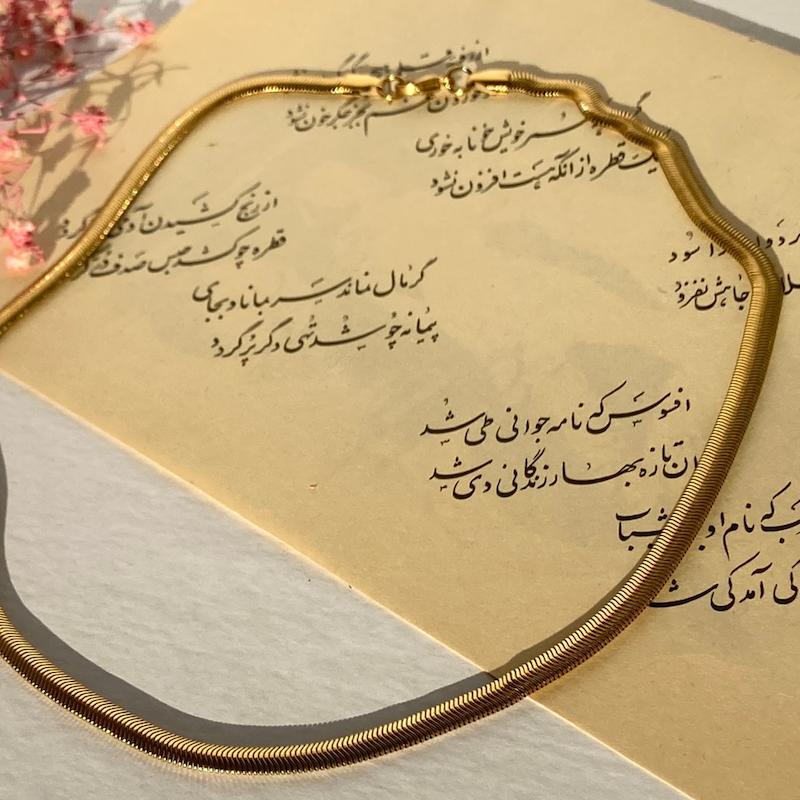 خوردن غم بجز جگر خون نشود
خویش خونابه خوری
یک قطره از آنکه هست افزون نشود
از رنج کشیدن آدمی
قطره چو کشد حبس صدف در گردد
گر مال نماند سر بماناد بجای
پیمانه چو شد تهی دگر پر گردد
را سود
جاهش نفزود
افسوس که نامه جوانی طی شد
تازه بهار زندگانی دی شد
که نام او شباب
کی آمد کی شد